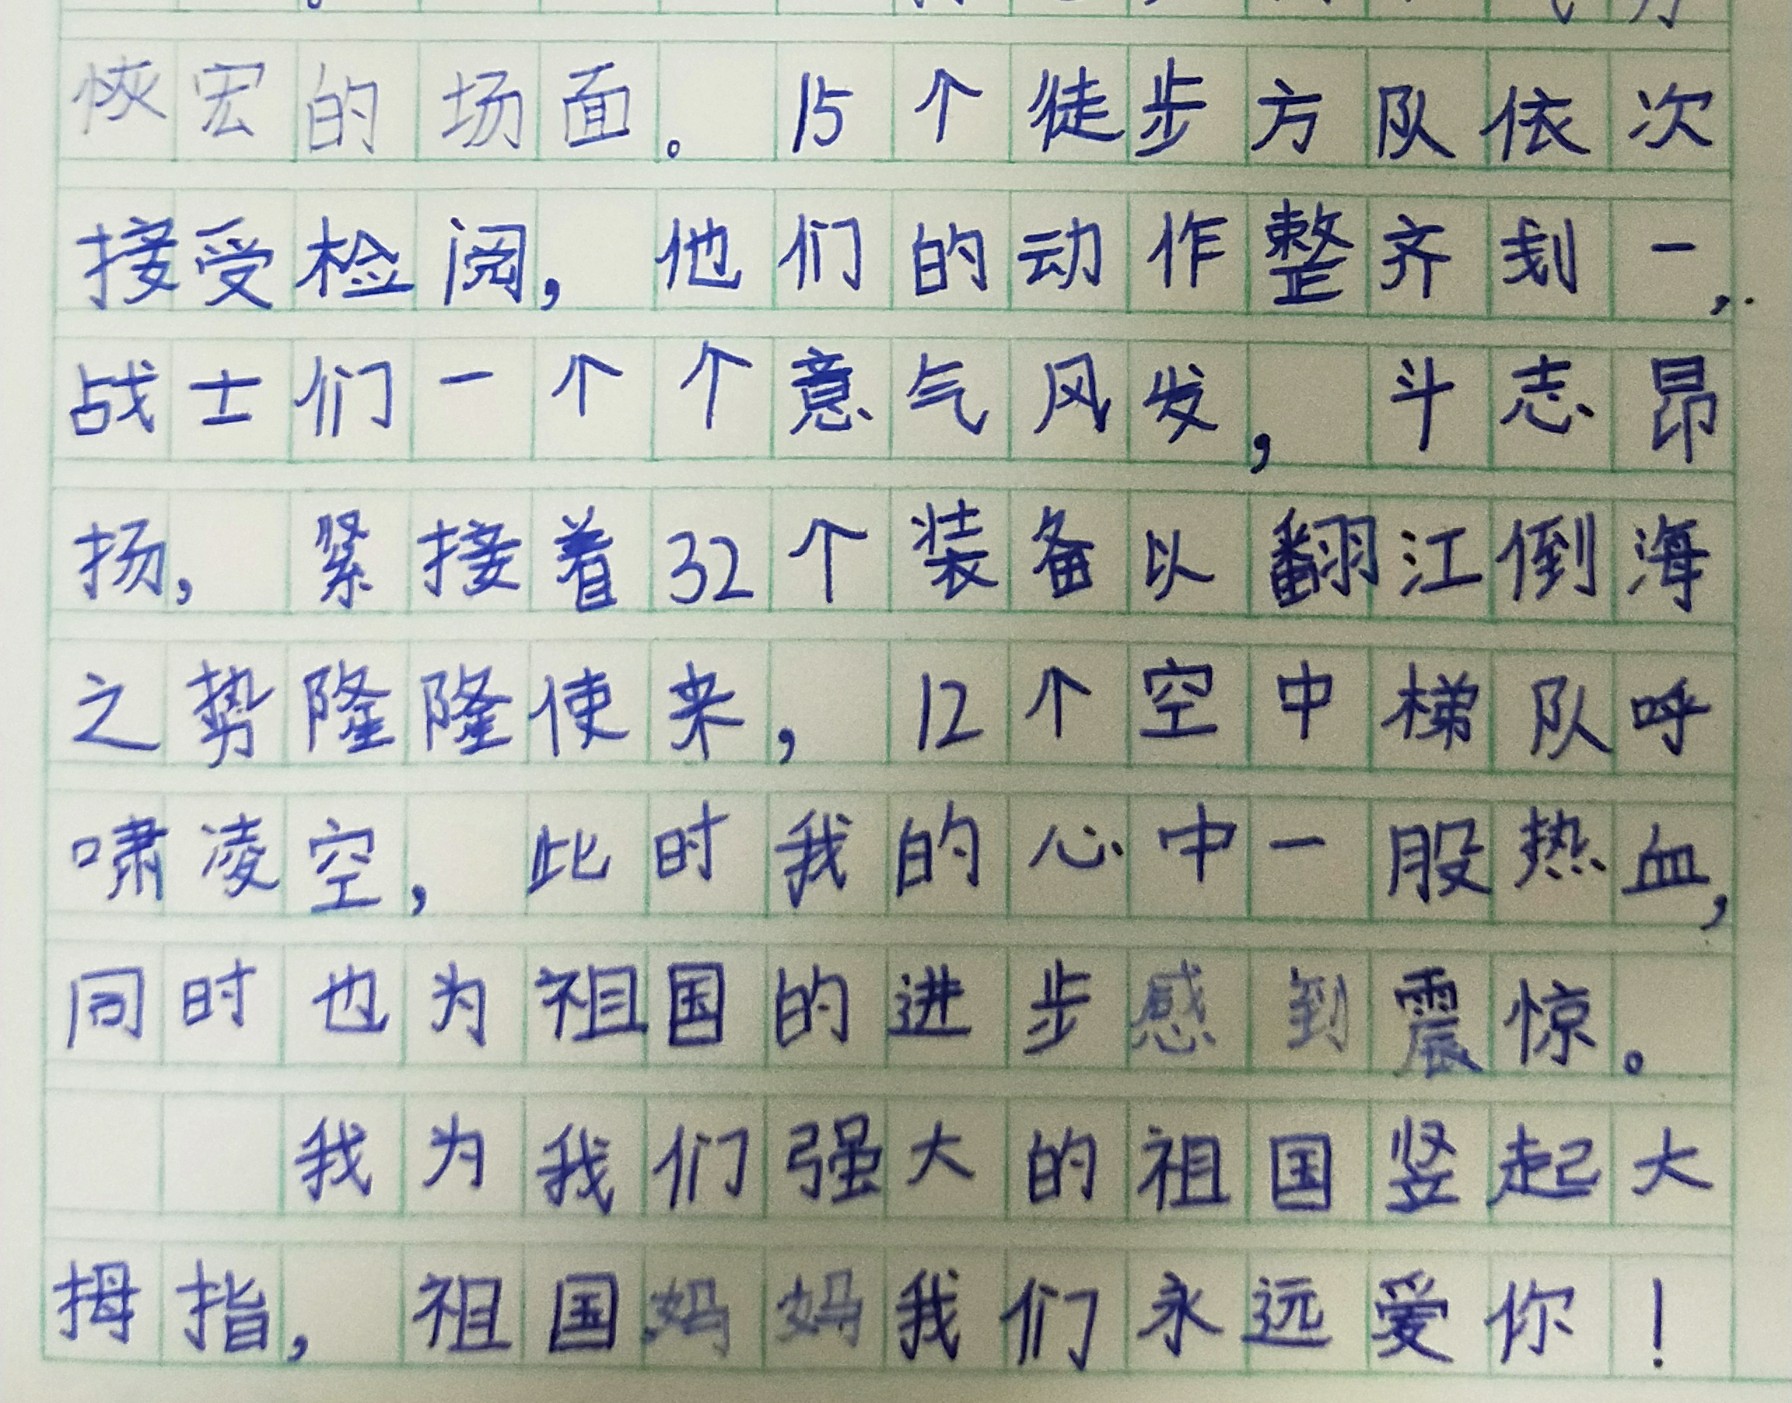 恢宏的场面。15个徒步方队依次
接受检阅,他们的动作整齐划一,
战士们一个个意气风发,斗志昂
扬,紧接着32个装备以翻江倒海
之势隆隆使来,12个空中梯队呼
啸凌空,此时我的心中一股热血,
同时也为祖国的进步感到震惊。
我为我们强大的祖国竖起大
拇指,祖国妈妈我们永远爱你!